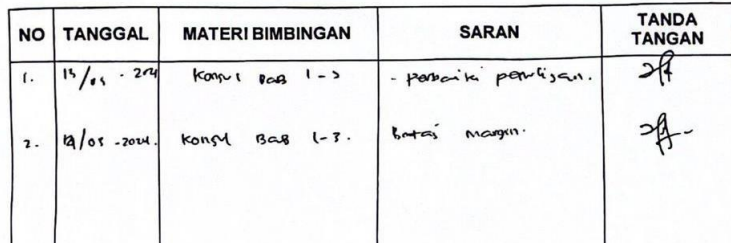 NO TANGGAL MATERI BIMBINGAN SARAN TANDA TANGAN
1. 15/05 - 2024 Konsul BAB 1-3 - perbaiki penulisan.
2. /05 - 2024. Konsul BAB 1-3. Batas margin.